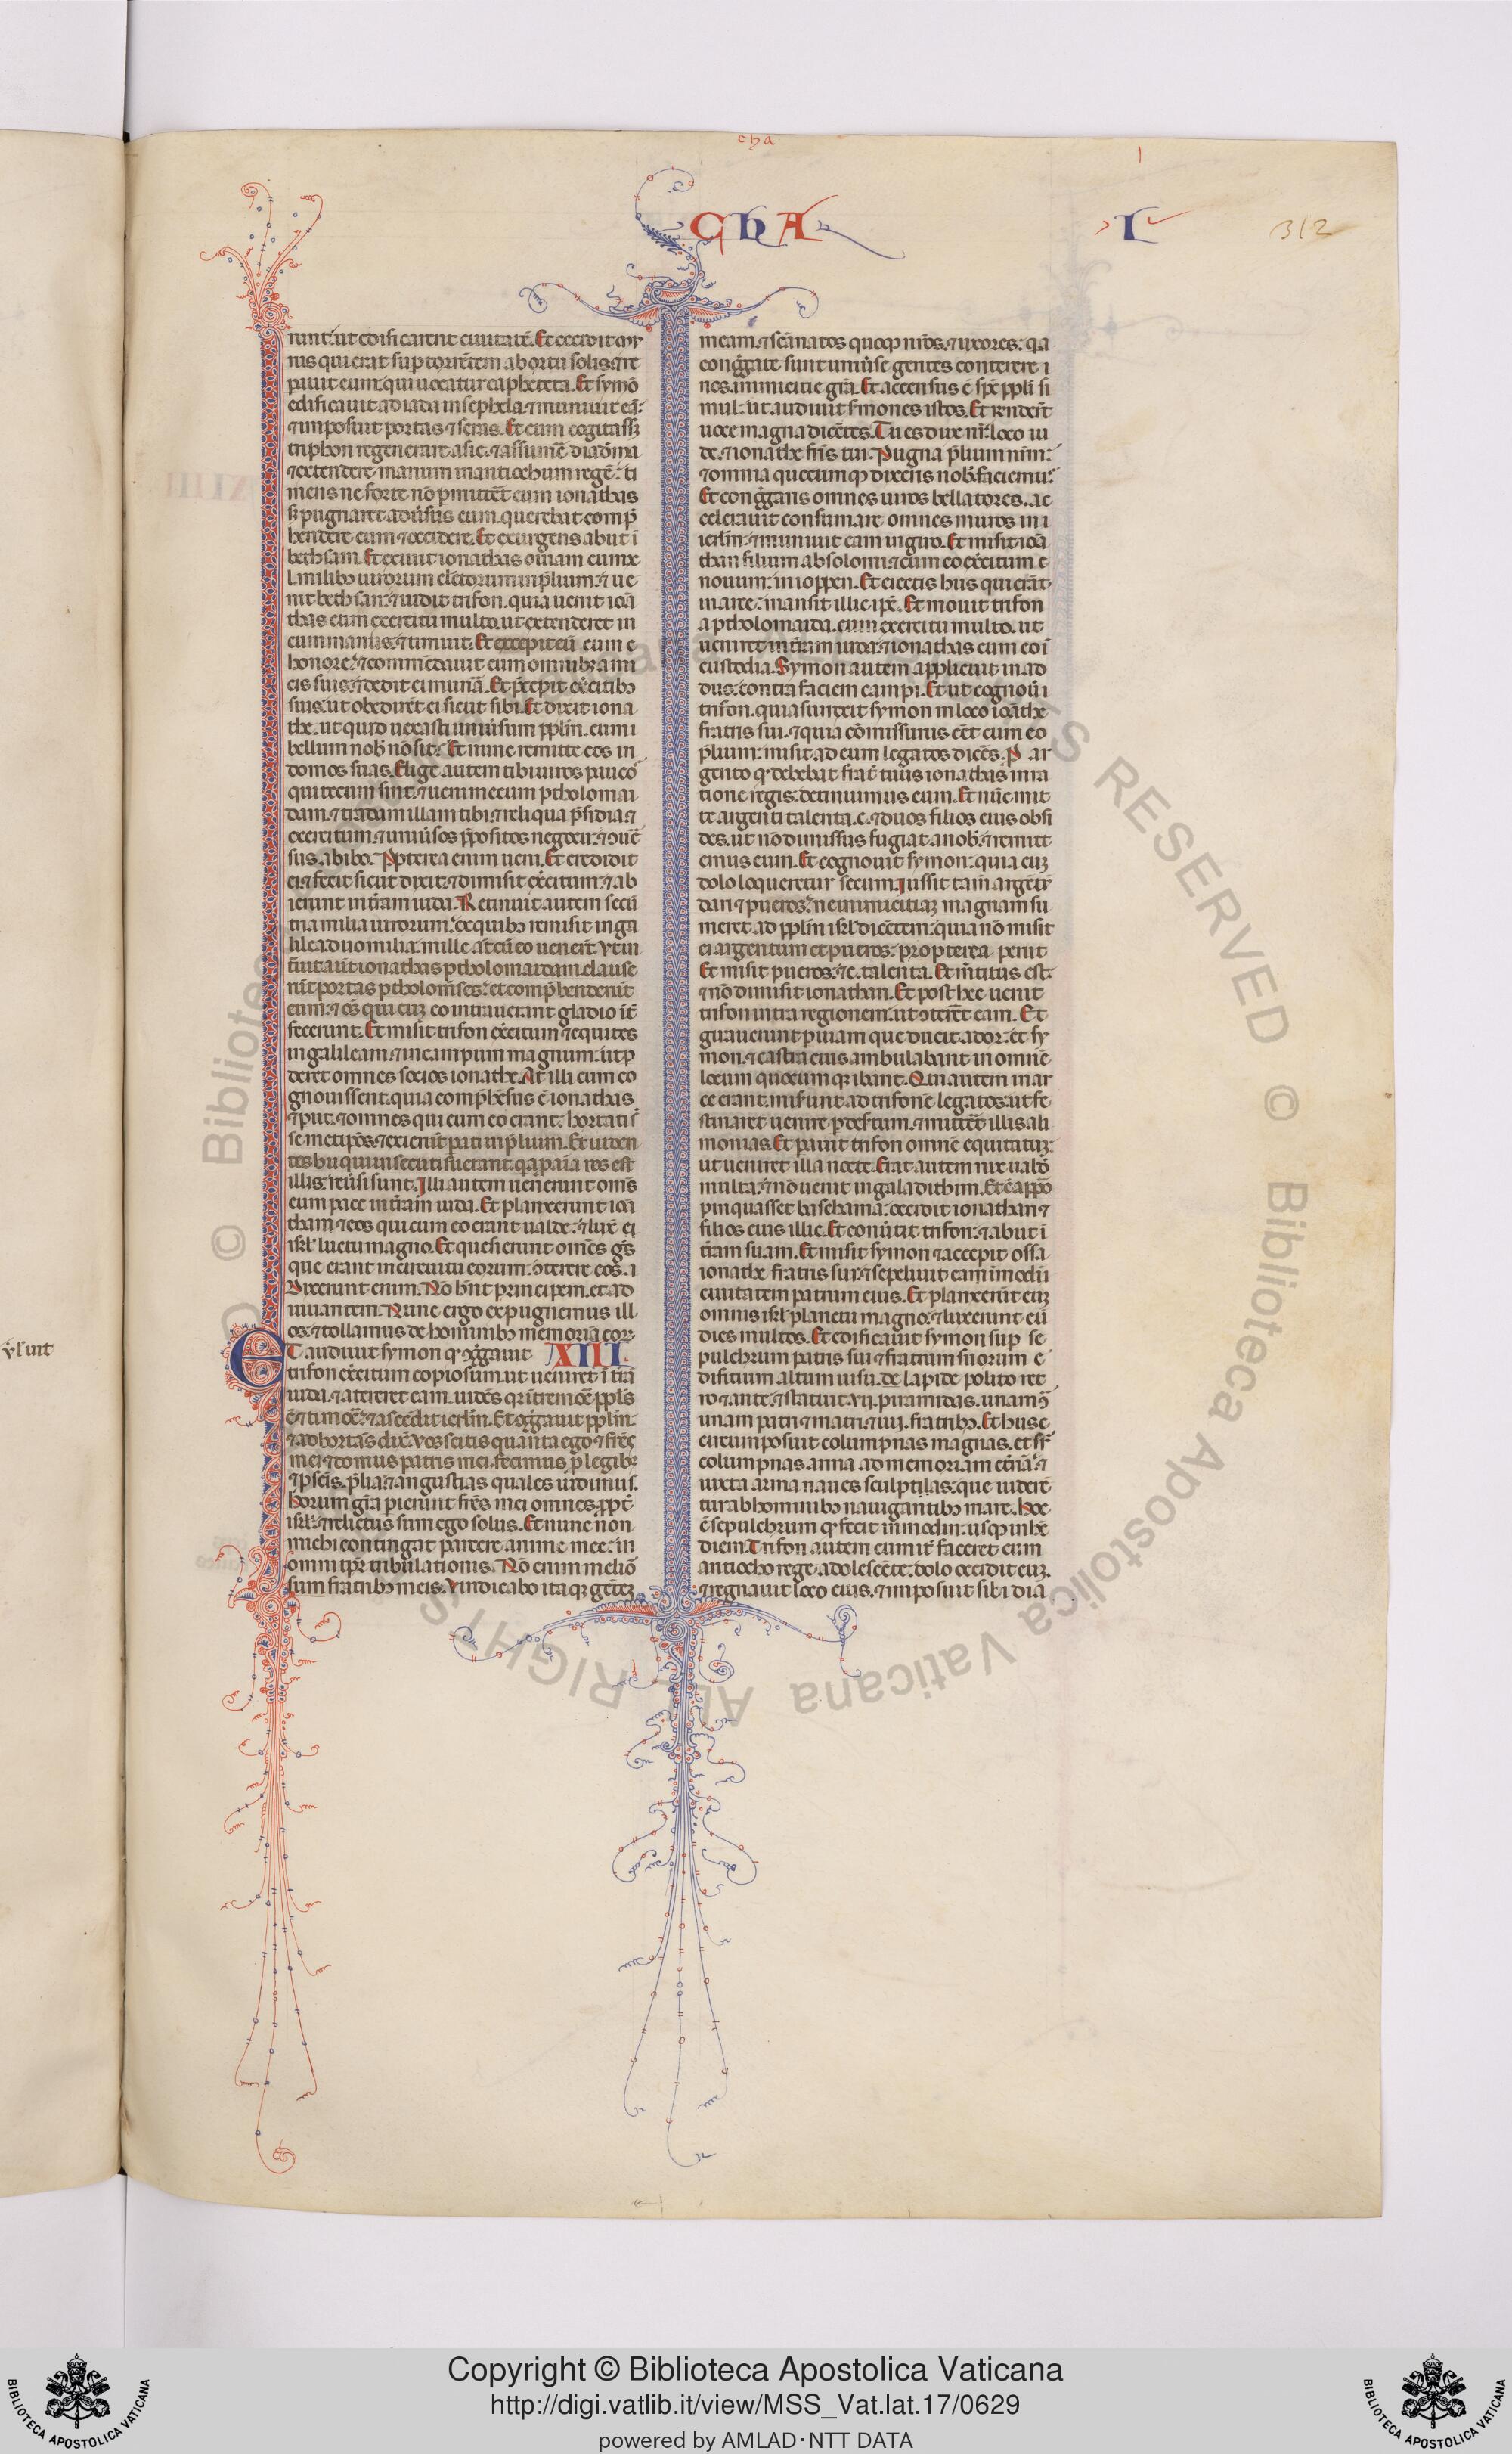 cha
CHA
I
312
runt: ut edificarent ciuitatē. Et cecidit mur
rus qui erat sup torrētem ab ortu solis. ⁊ re
parauit eum: qui uocatur caphetetа. Et symō
edificauit adiada in sephela: ⁊ muniuit eā:
⁊ imposuit portas ⁊ seras. Et cum cogitassꝫ
triphon regnare asie: ⁊ assumē diadēma
⁊ extendere manum in antiochum regē: ti
mens ne forte nō pmitteret eum ionathas
sꝫ pugnaret aduersus eum. querebat comp̄
hendere eum ⁊ occidere. Et exurgens abiit ī
bethsam. Et exiuit ionathas obuiam eum xl
milibꝫ uirorum electorum in p̄lium. ⁊ ue
nit bethsan: ⁊ uidit trifon. quia uenit iona
thas cum exercitu multo. ut extenderet in
eum manus. ⁊ timuit. Et excepit eū cum
honore: ⁊ commēdauit eum omnibꝫ ami
cis suis: ⁊ dedit ei munā. Et p̄cepit exercitibꝫ
suis: ut obedirēt ei sicut sibi. Et dixit iona
the. ut quid uexasti uniūsum pplm. cum
bellum nob̄ nō sit: Et nunc remitte eos in
domos suas. Elige autem tibi uiros paucos
qui tecum sint. ⁊ ueni mecum ptholomai
dam. ⁊ tradam illam tibi: ⁊ reliqua p̄sidia ⁊
exercitum. ⁊ uniūsos p̄positos negocii: ⁊ cōuē
sus. abibo. Ppterea enim ueni. Et credidit
ei: ⁊ fecit sicut dixit: ⁊ dimisit exercitum: ⁊ ab
ierunt in t̄ram iuda. Retinuit autem secū
tria milia uirorum: ex quibꝫ remisit in ga
lilea duo milia: mille at cū eo uenerūt. Vt in
trauit aūt ionathas ptholomaidam. clause
rūt portas ptholomēses: et comp̄henderunt
eum: ⁊ oēs qui cum eo intrauerant gladio int̄
fecerunt. Et misit trifon exercitum ⁊ equites
in galileam. ⁊ in campum magnum: ut p
deret omnes socios ionathe. At illi cum co
gnouissent. quia comp̄hēsus ē ionathas
⁊ piit. ⁊ omnes qui cum eo erant: hortati s̄
semetipsos. ⁊ exierūt parati in p̄lium. Et uiden
tes hii qui insecuti fuerant. q̄ p aīa res est
illis: reūsi sunt. Illi autem uenerunt oms
cum pace in t̄ram iuda. Et planxerunt iona
tham ⁊ eos qui cum eo erant ualde. ⁊ luxit
isrl luctu magno. Et quesierunt omēs gētes
que erant in circuitu eorum. cōterere eos. d
Dixerunt enim. Nō hnt principem. et ad
iuuantem. Nunc ergo expugnemus ill
os: ⁊ tollamus de hominibꝫ memoriā eorum
ET audiuit symon q̄ cōgregauit XIII
trifon exercitum copiosum. ut ueniret ī t̄ra
iuda. ⁊ atereret eam. uidēs q̄ in tremore pplus
ē ⁊ timore: ⁊ ascendit ierlm. Et cōgregauit pplm:
⁊ adhortās dixit. Vos scitis quanta ego ⁊ fr̄es
mei ⁊ domus patris mei. fecimus p legibꝫ
⁊ p scīs. p̄lia: ⁊ angustias quales uidimus.
horum gr̄a pierunt fr̄es mei omnes. ppt̄
isrl: ⁊ relictus sum ego solus. Et nunc non
michi contingat parcere anime mee: in
omni tpr̄e tribulationis. Nō enim melior
sum fratribꝫ meis. Vindicabo itaqꝫ gētem
meam. ⁊ scā natos quoqꝫ nr̄os. ⁊ uxores: q̄a
cōgregate sunt uniūse gentes conterere
nos. inimicitie gr̄a. Et accensus ē spc̄ ppli si
mul: ut audiuit sermones istos. Et rnderūt
uoce magna dicētes. Tu es dux nr̄. loco iu
de. ⁊ ionathe fr̄is tui. Pugna p̄lium nr̄m:
⁊ omnia quecumqꝫ dixeris nob̄. faciemus.
Et cōgregans omnes uiros bellatores. ac
celerauit consumare omnes muros in
ierlm: ⁊ muniuit eam in giro. Et misit iona
than filium absolomi ⁊ cum eo exercitum
nouum: in ioppen. Et eiectis hiis qui erāt
in arce: mansit illic ipse. Et mouit trifon
a ptholomaida. cum exercitu multo. ut
ueniret in t̄ram iuda: ⁊ ionathas cum eo ī
custodia. Symon autem applicuit in ad
dus: contra faciem campi. Et ut cognouit
trifon. quia surrexit symon in loco ionathe
fratris sui. ⁊ quia cōmissurus eēt cum eo
p̄lium: misit ad eum legatos dicēs. P ar
gento q̄ debebat frat̄ tuus ionathas in ra
tione regis. detinuimus eum. Et nūc mit
te argenti talenta .c. ⁊ duos filios eius obsi
des. ut nō dimissus fugiat a nob̄: ⁊ remitt
emus eum. Et cognouit symon: quia cum
dolo loqueretur secum. Iussit tam argētū
dari ⁊ pueros: ne inimicitiam magnam su
meret ad pplm isrl dicētem: quia nō misit
ei argentum et pueros: propterea periit
Et misit pueros: ⁊ .c. talenta. Et mētitus est:
⁊ nō dimisit ionathan. Et post hec uenit
trifon intra regionem: ut cōtereret eam. Et
girauerunt p uiam que ducit ador: et sy
mon. ⁊ castra eius ambulabant in omnē
locum quocumqꝫ ibant. Qui autem in ar
ce erant. miserunt ad trifonē legatos: ut fe
stinaret uenire p desertum. ⁊ mitteret illis ali
monias. Et parauit trifon omnē equitatum:
ut ueniret illa nocte. Erat autem nix ualde
multa: ⁊ nō uenit in galadithim. Et cū appro
pinquasset baschama: occidit ionathan ⁊
filios eius illic. Et conuertit trifon: ⁊ abiit ī
t̄ram suam. Et misit symon ⁊ accepit ossa
ionathe fratris sui: ⁊ sepeliuit eam ī modin
ciuitatem patrum eius. Et planxerūt eum
omnis isrl planctu magno: ⁊ luxerunt eū
dies multos. Et edificauit symon sup se
pulchrum patris sui ⁊ fratrum suorum e
dificium altum uisu. de lapide polito ret
ro ⁊ ante: ⁊ statuit .vii. piramidas. unam cō
unam patri ⁊ matri: ⁊ iiii. fratribꝫ. Et hiis c
circumposuit columpnas magnas. et sr̄
columpnas arma ad memoriam et̄nā: ⁊
iuxta arma naues sculptilas: que uiderē
tur ab hominibꝫ nauigantibꝫ mare. Hoc
ē sepulchrum q̄ fecit in modin: usqꝫ in hūc
diem. Trifon autem cum iret̄ faceret cum
antiocho rege. adolescēte: dolo occidit eum.
⁊ regnauit loco eius. ⁊ imposuit sibi dia
Copyright © Biblioteca Apostolica Vaticana
http://digi.vatlib.it/view/MSS_Vat.lat.17/0629
powered by AMLAD·NTT DATA
BIBLIOTECA APOSTOLICA VATICANA
BIBLIOTECA APOSTOLICA VATICANA